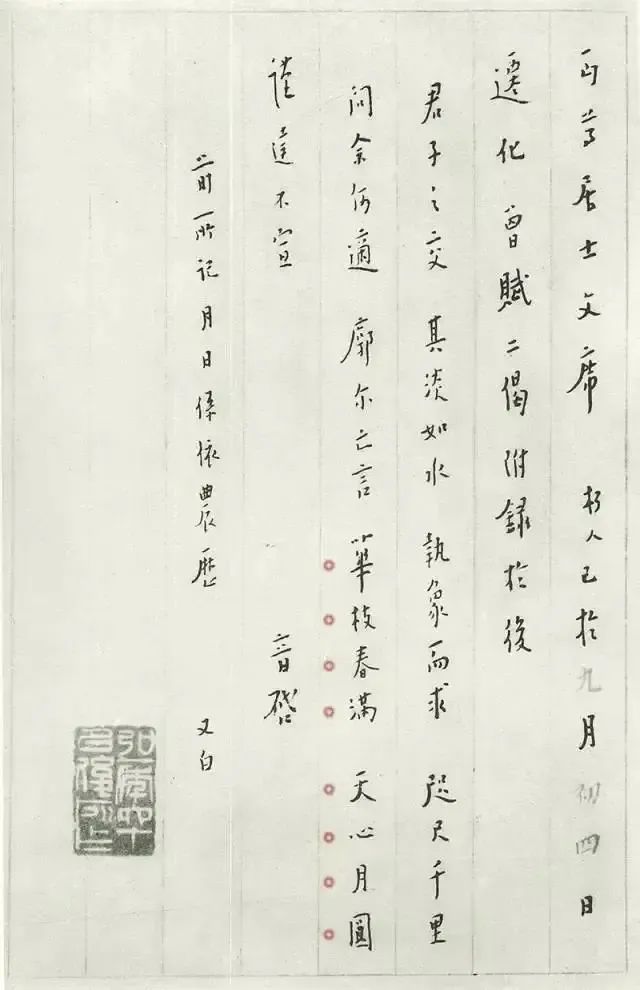 丏尊居士文席 朽人已於九月初四日
遷化曾賦二偈附録於後
君子之交 其淡如水 執象而求 咫尺千里
問余何適 廓尔亡言 華枝春滿 天心月圓
謹達不宣 音啓
前所記月日係依農歷 又白